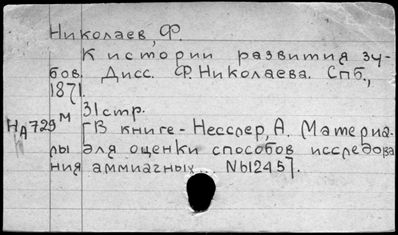 Николаев, Ф.
К истории развития зу-
бов. Дисс. Ф. Николаева. Спб.,
1871.
31 стр.
НА729м
[В книге - Несслер, А. Материа-
лы для оценки способов исследова
ния аммиачных... №1245].